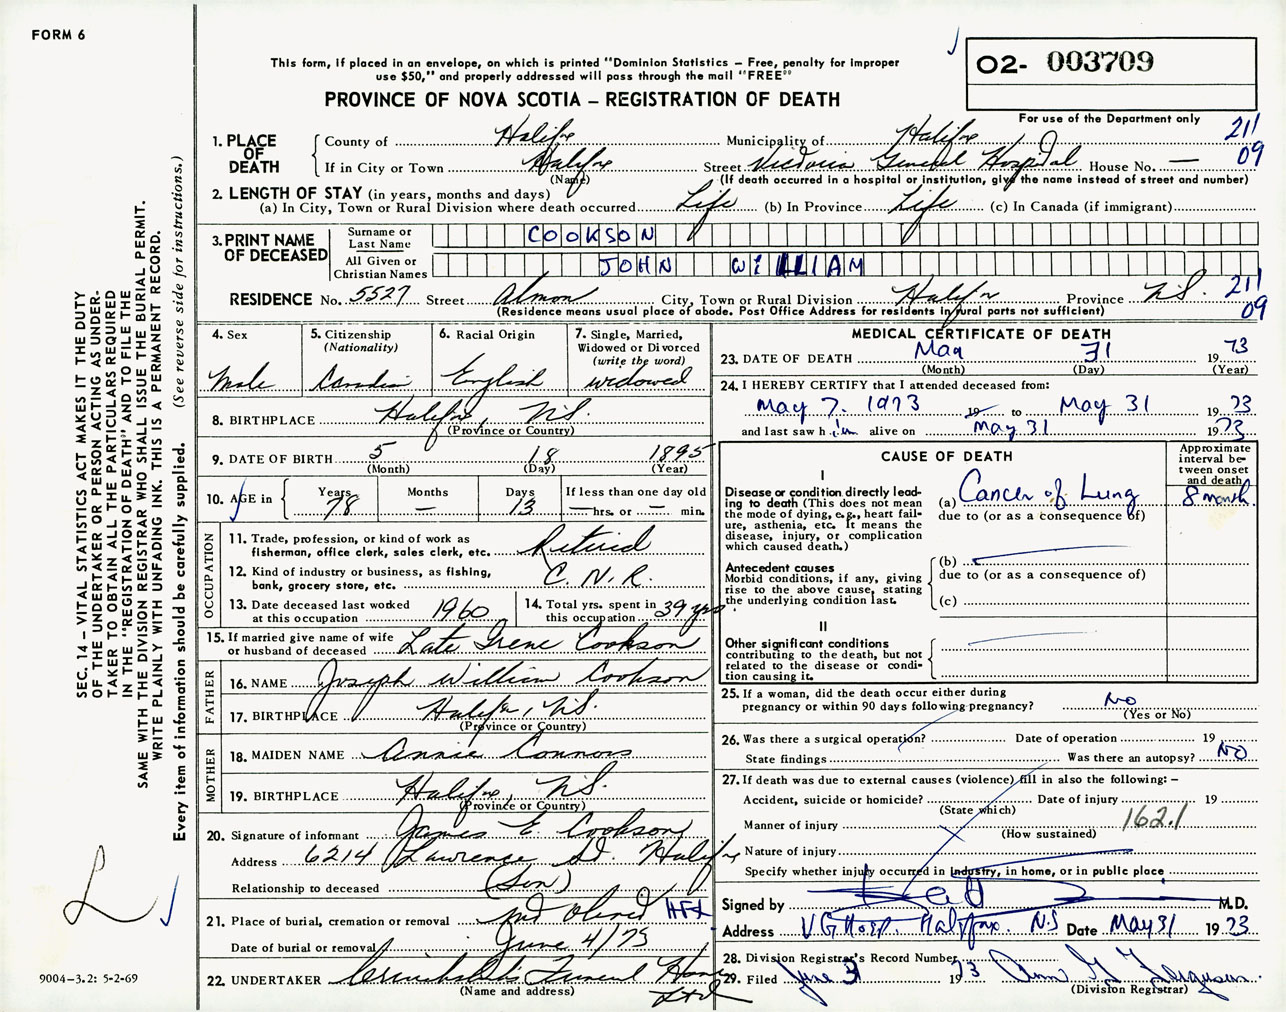 FORM 6
This form, if placed in an envelope, on which is printed "Dominion Statistics – Free, penalty for improper
use $50," and properly addressed will pass through the mail "FREE"
PROVINCE OF NOVA SCOTIA – REGISTRATION OF DEATH
02- 003709
For use of the Department only
211
09
1. PLACE OF DEATH
County of Halifax Municipality of Halifax
If in City or Town Halifax Street Victoria General Hospital House No. —
(Name) (If death occurred in a hospital or institution, give the name instead of street and number)
2. LENGTH OF STAY (in years, months and days)
(a) In City, Town or Rural Division where death occurred Life (b) In Province Life (c) In Canada (if immigrant)
3. PRINT NAME OF DECEASED
Surname or Last Name COOKSON
All Given or Christian Names JOHN WILLIAM
RESIDENCE No. 5527 Street Almon City, Town or Rural Division Halifax Province N.S. 211
(Residence means usual place of abode. Post Office Address for residents in rural parts not sufficient) 09
4. Sex
Male
5. Citizenship
(Nationality)
Canadian
6. Racial Origin
English
7. Single, Married,
Widowed or Divorced
(write the word)
widowed
8. BIRTHPLACE Halifax, N.S.
(Province or Country)
9. DATE OF BIRTH 5 18 1895
(Month) (Day) (Year)
10. AGE in
Years 78
Months —
Days 13
If less than one day old
— hrs. or — min.
OCCUPATION
11. Trade, profession, or kind of work as
fisherman, office clerk, sales clerk, etc. Retired
12. Kind of industry or business, as fishing,
bank, grocery store, etc. C.N.R.
13. Date deceased last worked
at this occupation 1960
14. Total yrs. spent in
this occupation 39 yrs.
15. If married give name of wife
or husband of deceased Late Irene Cookson
FATHER
16. NAME Joseph William Cookson
17. BIRTHPLACE Halifax, N.S.
(Province or Country)
MOTHER
18. MAIDEN NAME Annie Connors
19. BIRTHPLACE Halifax, N.S.
(Province or Country)
20. Signature of informant James E. Cookson
Address 6214 Lawrence St. Halifax
Relationship to deceased (Son)
21. Place of burial, cremation or removal Mt Olivet HFX
Date of burial or removal June 4/73
22. UNDERTAKER Cruikshank's Funeral Home
(Name and address) Ltd
MEDICAL CERTIFICATE OF DEATH
23. DATE OF DEATH May 31 1973
(Month) (Day) (Year)
24. I HEREBY CERTIFY that I attended deceased from:
May 7. 1973 19 to May 31 1973
and last saw him alive on May 31 1973
CAUSE OF DEATH
Approximate
interval be-
tween onset
and death
I
Disease or condition directly lead-
ing to death (This does not mean
the mode of dying, e.g., heart fail-
ure, asthenia, etc. It means the
disease, injury, or complication
which caused death.)
(a) Cancer of Lung 8 month
due to (or as a consequence of)
Antecedent causes
Morbid conditions, if any, giving
rise to the above cause, stating
the underlying condition last.
(b)
due to (or as a consequence of)
(c)
II
Other significant conditions
contributing to the death, but not
related to the disease or condi-
tion causing it.
25. If a woman, did the death occur either during
pregnancy or within 90 days following pregnancy? No
(Yes or No)
26. Was there a surgical operation? Date of operation 19
State findings Was there an autopsy? No
27. If death was due to external causes (violence) fill in also the following:–
Accident, suicide or homicide? Date of injury 19
(State which)
Manner of injury 162.1
(How sustained)
Nature of injury
Specify whether injury occurred in industry, in home, or in public place
Signed by M.D.
Address V G Hosp. Halifax. N.S Date May 31 1973
28. Division Registrar's Record Number
29. Filed June 3 1973 Ann Ferguson
(Division Registrar)
SEC. 14 – VITAL STATISTICS ACT MAKES IT THE DUTY
OF THE UNDERTAKER OR PERSON ACTING AS UNDER-
TAKER TO OBTAIN ALL THE PARTICULARS REQUIRED
IN THE "REGISTRATION OF DEATH" AND TO FILE THE
SAME WITH THE DIVISION REGISTRAR WHO SHALL ISSUE THE BURIAL PERMIT.
WRITE PLAINLY WITH UNFADING INK. THIS IS A PERMANENT RECORD.
Every item of information should be carefully supplied. (See reverse side for instructions.)
9004-3.2: 5-2-69